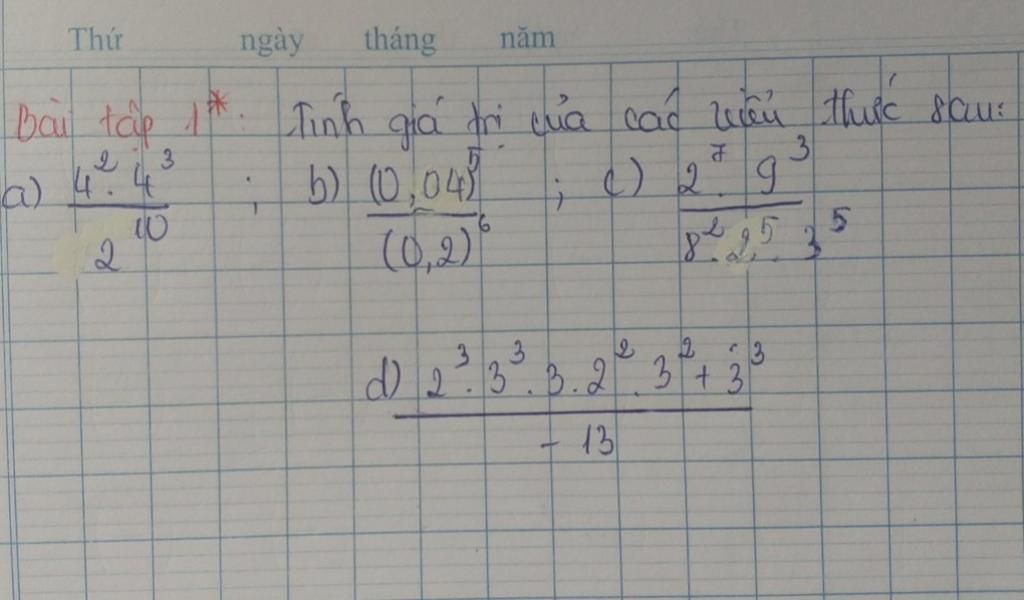 Thứ ngày tháng năm
Bài tập 1*: Tính giá trị của các biểu thức sau:
a) \frac{4^2 . 4^3}{2^{10}} ; b) \frac{(0,04)^5}{(0,2)^6} ; c) \frac{2^7 . 9^3}{8^2 . 2^5 . 3^5}
d) \frac{2^3 . 3^3 . 3 . 2^2 . 3^2 + 3^3}{- 13}